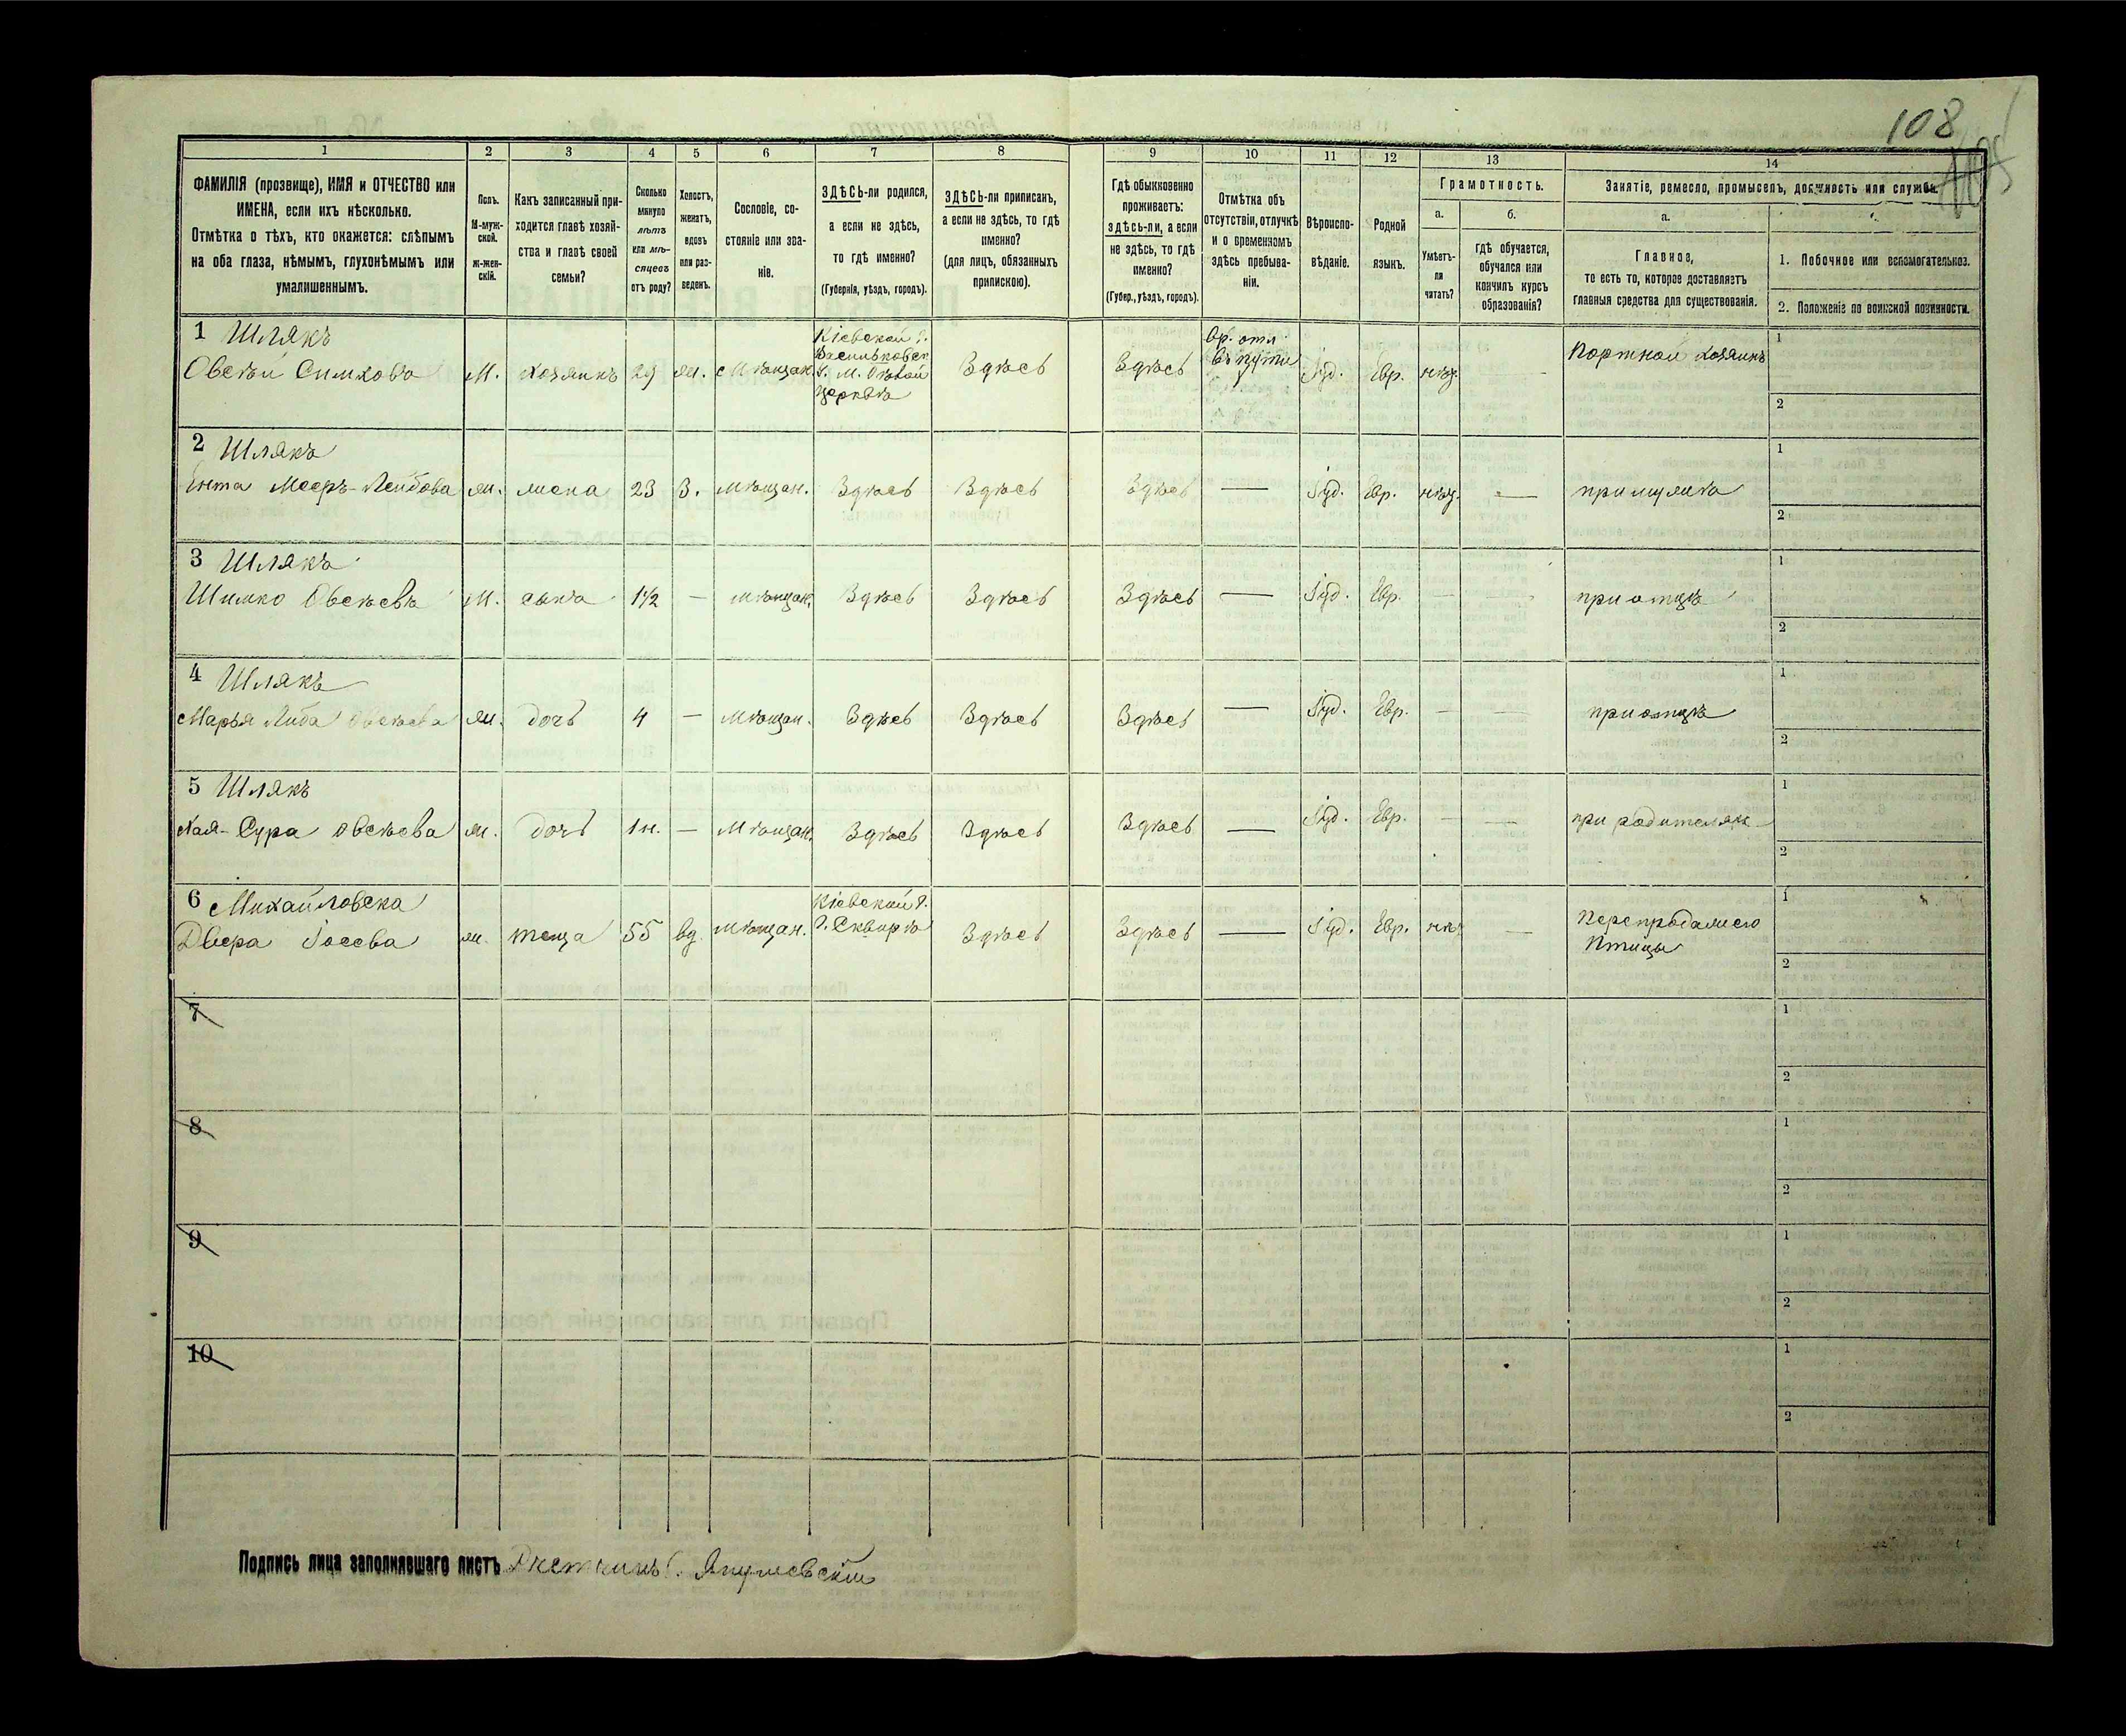 108
1 2 3 4 5 6 7 8 9 10 11 12 13 14
ФАМИЛІЯ (прозвище), ИМЯ и ОТЧЕСТВО или ИМЕНА, если ихъ нѣсколько.
Отмѣтка о тѣхъ, кто окажется: слѣпымъ на оба глаза, нѣмымъ, глухонѣмымъ или умалишеннымъ.
Полъ. М-мужской. ж-женскій.
Какъ записанный приходится главѣ хозяйства и главѣ своей семьи?
Сколько минуло лѣтъ или мѣсяцевъ отъ роду?
Холостъ, женатъ, вдовъ или разведенъ.
Сословіе, состояніе или званіе.
ЗДѢСЬ-ли родился, а если не здѣсь, то гдѣ именно? (Губернія, уѣздъ, городъ).
ЗДѢСЬ-ли приписан, а если не здѣсь, то гдѣ именно? (для лицъ, обязанныхъ припискою).
Гдѣ обыкновенно проживаетъ: здѣсь-ли, а если не здѣсь, то гдѣ именно? (Губер., уѣздъ, городъ).
Отмѣтка объ отсутствіи, отлучкѣ и о временномъ здѣсь пребываніи.
Вѣроисповѣданіе.
Родной языкъ.
Грамотность.
а. Умѣетъ-ли читать?
б. Гдѣ обучается, обучался или кончилъ курсъ образованія?
Занятіе, ремесло, промыселъ, должность или служба.
а. Главное, то есть то, которое доставляетъ главныя средства для существованія.
1. Побочное или вспомогательное.
2. Положеніе по воинской повинности.
1 Шлякъ
Овсѣй Симховъ м. хозяинъ 29 ж. Мѣщан. Кіевской г. Васильковск. у. м. Бѣлой Церквѣ Здѣсь Здѣсь Вр. отл. въ пути Іуд. Евр. нѣт. Портной хозяинъ
1
2
2 Шлякъ
Ента Мееръ-Лейбова ж. жена 23 З. Мѣщан. Здѣсь Здѣсь Здѣсь — Іуд. Евр. нѣт. — при мужѣ
1
2
3 Шлякъ
Шимко Овсѣевъ М. сынъ 1½ — Мѣщан. Здѣсь Здѣсь Здѣсь — Іуд. Евр. — — при отцѣ
1
2
4 Шлякъ
Марья Либа Овсѣева ж. дочь 4 — Мѣщан. Здѣсь Здѣсь Здѣсь — Іуд. Евр. — — при отцѣ
1
2
5 Шлякъ
Хая-Сура Овсѣева ж. дочь 1 н. — Мѣщан. Здѣсь Здѣсь Здѣсь — Іуд. Евр. — — при родителях
1
2
6 Михайловска
Двера Іосева ж. теща 55 вд. Мѣщан. Кіевской г. г. Сквирѣ Здѣсь Здѣсь — Іуд. Евр. нѣт — Перепродажею Птицы
1
2
7
1
2
8
1
2
9
1
2
10
1
2
Подпись лица заполнявшаго листъ